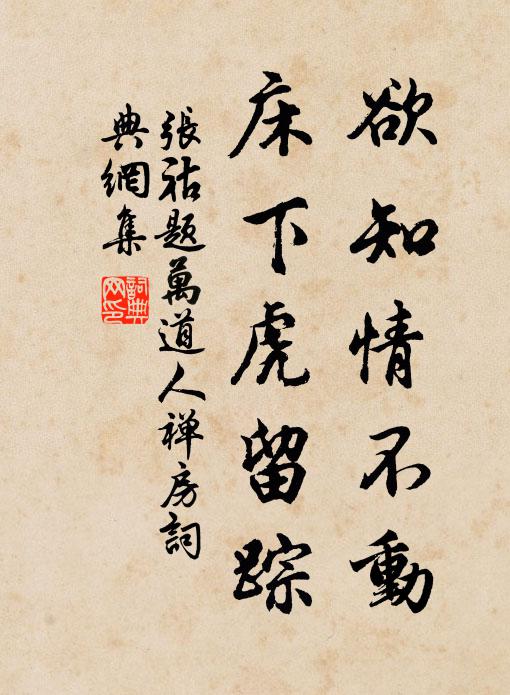 欲知情不動
床下虎留踪
張祜題萬道人禅房詞
典網集
詞典
网印